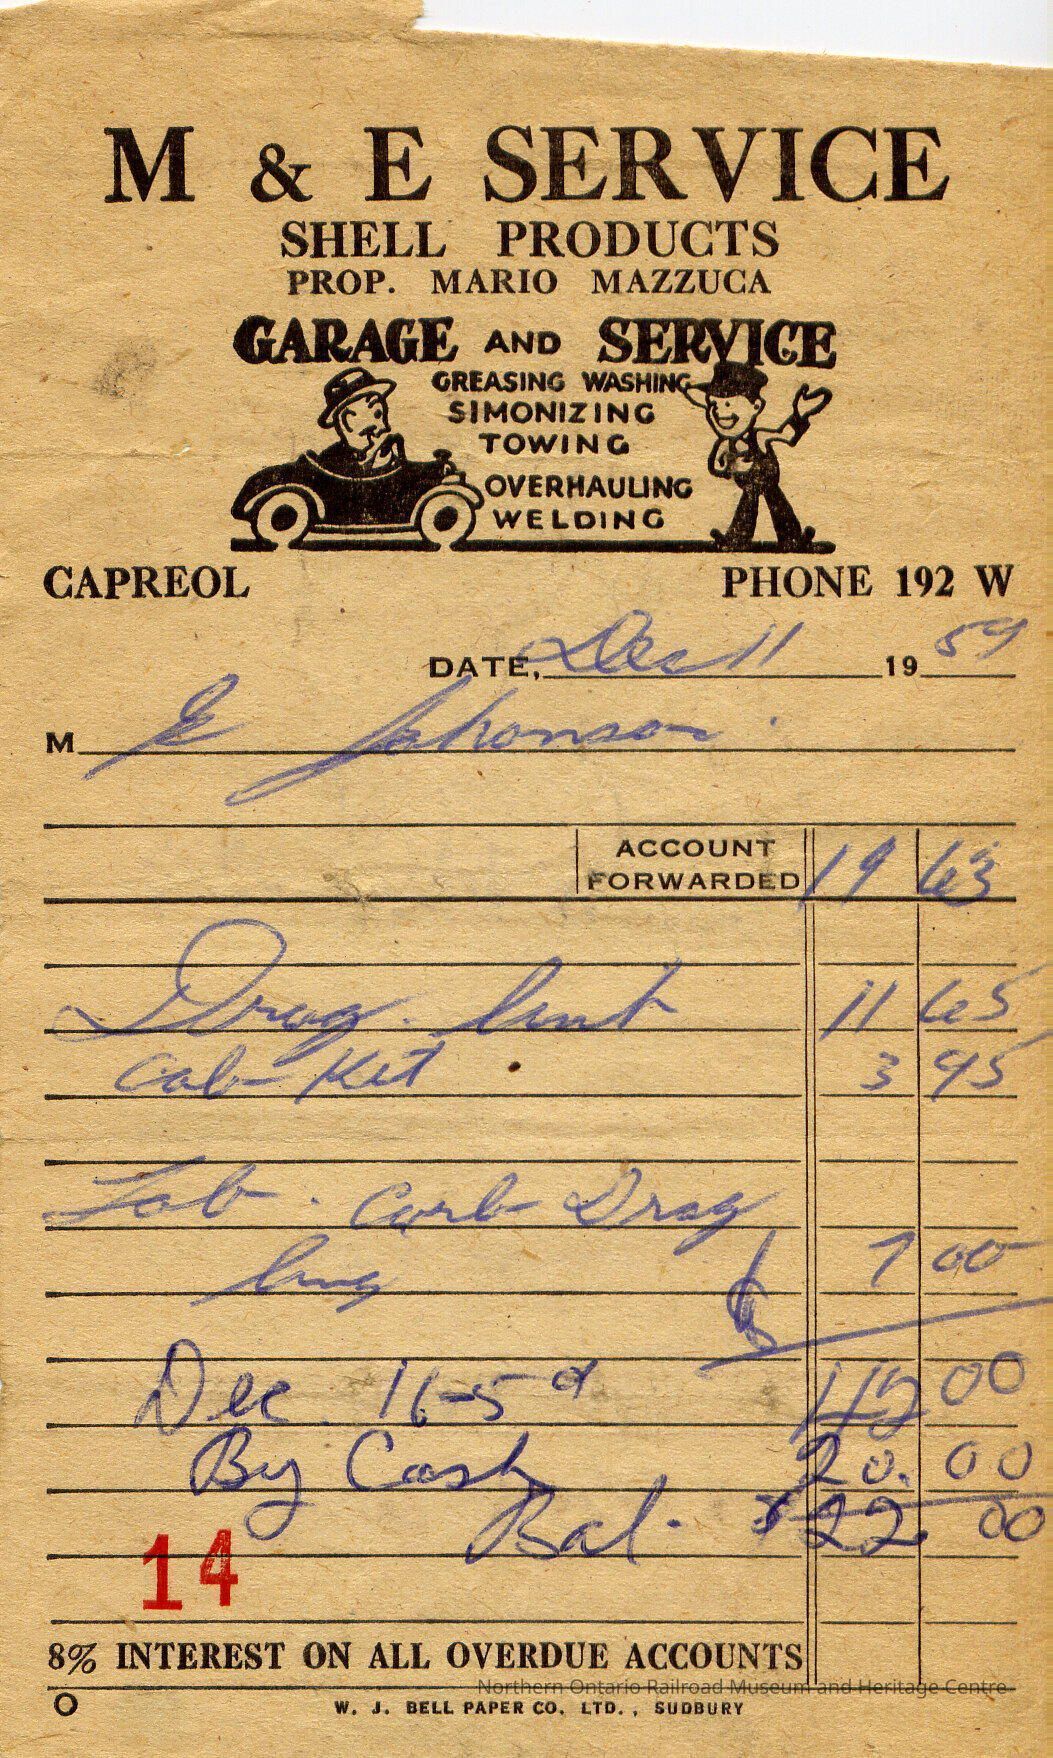 M & E SERVICE
SHELL PRODUCTS
PROP. MARIO MAZZUCA
GARAGE AND SERVICE
GREASING WASHING
SIMONIZING
TOWING
OVERHAULING
WELDING
CAPREOL PHONE 192 W
DATE, Dec 11 19 59
M E Johonson
ACCOUNT FORWARDED 19 63
Drag. 11 65
Cab Kit 3 95
Lab. Carb Drag
7 00
Dec. 16-59 42 00
By Cash 20. 00
Bal. $ 22 00
14
8% INTEREST ON ALL OVERDUE ACCOUNTS
Northern Ontario Railroad Museum and Heritage Centre
W. J. BELL PAPER CO. LTD., SUDBURY